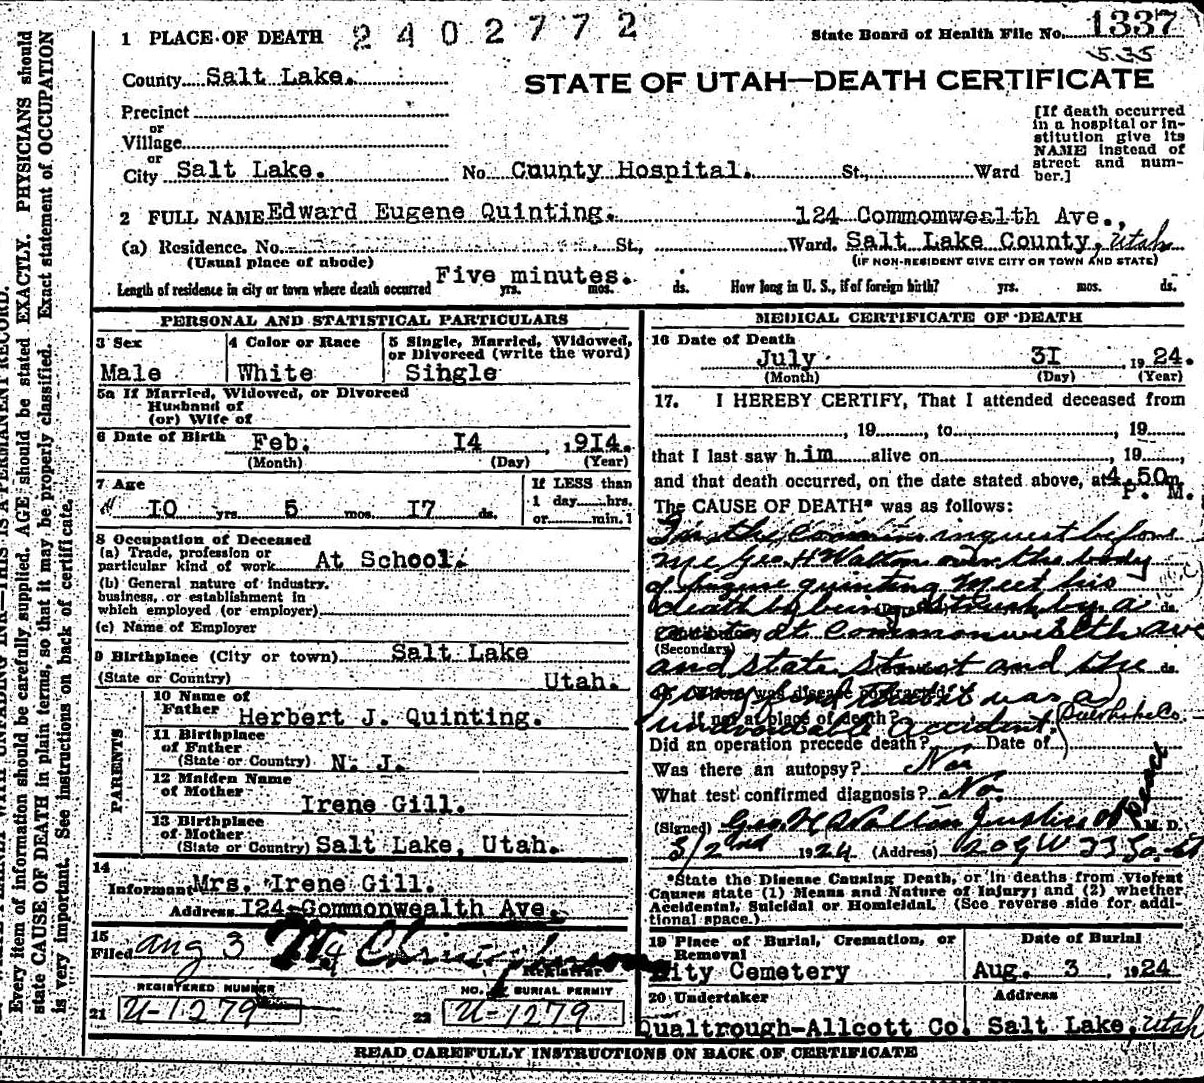 1 PLACE OF DEATH 2402772
State Board of Health File No. 1337
535
County Salt Lake.
STATE OF UTAH—DEATH CERTIFICATE
Precinct
or
Village
or
City Salt Lake. No County Hospital. St., Ward
[If death occurred
in a hospital or in-
stitution give its
NAME instead of
street and num-
ber.]
2 FULL NAME Edward Eugene Quinting. 124 Commomwealth Ave.,
(a) Residence. No. St., Ward. Salt Lake County, Utah
(Usual place of abode) (IF NON-RESIDENT GIVE CITY OR TOWN AND STATE)
Length of residence in city or town where death occurred Five minutes. yrs. mos. ds. How long in U. S., if of foreign birth? yrs. mos. ds.
PERSONAL AND STATISTICAL PARTICULARS
3 Sex
Male
4 Color or Race
White
5 Single, Married, Widowed,
or Divorced (write the word)
Single
5a If Married, Widowed, or Divorced
Husband of
(or) Wife of
6 Date of Birth Feb. 14, 1914.
(Month) (Day) (Year)
7 Age
10 yrs 5 mos. 17 ds.
If LESS than
1 day hrs.
or min.?
8 Occupation of Deceased
(a) Trade, profession or
particular kind of work At School.
(b) General nature of industry.
business, or establishment in
which employed (or employer)
(c) Name of Employer
9 Birthplace (City or town) Salt Lake
(State or Country) Utah.
PARENTS
10 Name of
Father Herbert J. Quinting.
11 Birthplace
of Father
(State or Country) N. J.
12 Maiden Name
of Mother Irene Gill.
13 Birthplace
of Mother
(State or Country) Salt Lake, Utah.
14
Informant Mrs. Irene Gill.
Address 124 Commonwealth Ave.
15
Filed Aug 3
Registrar
REGISTERED NUMBER
21 U-1279
NO. BURIAL PERMIT
22 U-1279
MEDICAL CERTIFICATE OF DEATH
16 Date of Death
July 31, 1924.
(Month) (Day) (Year)
17. I HEREBY CERTIFY, That I attended deceased from
, 19, to, 19
that I last saw him alive on, 19,
and that death occurred, on the date stated above, at 4.50m
P. M.
The CAUSE OF DEATH* was as follows:
inquest before
me Geo. H Walton over the body
of Eugene quinting Meet his
death by being struck by a
auto at Commonwealth ave
(Secondary)
and State Street and the
jury find that it was a
unavoidable Accident. Salt Lake Co
if not at place of death?
Did an operation precede death? Date of
Was there an autopsy? No
What test confirmed diagnosis? No.
(Signed) Geo. H Walton Justice of Peace M. D.
2nd 1924 (Address)
*State the Disease Causing Death, or in deaths from Violent
Causes state (1) Means and Nature of Injury; and (2) whether
Accidental, Suicidal or Homicidal. (See reverse side for addi-
tional space.)
19 Place of Burial, Cremation, or
Removal
City Cemetery
Date of Burial
Aug. 3, 1924
20 Undertaker Address
Qualtrough-Allcott Co. Salt Lake, Utah
READ CAREFULLY INSTRUCTIONS ON BACK OF CERTIFICATE
Every item of information should be carefully supplied. AGE should be stated EXACTLY. PHYSICIANS should
state CAUSE OF DEATH in plain terms, so that it may be properly classified. Exact statement of OCCUPATION
is very important. See instructions on back of certificate.